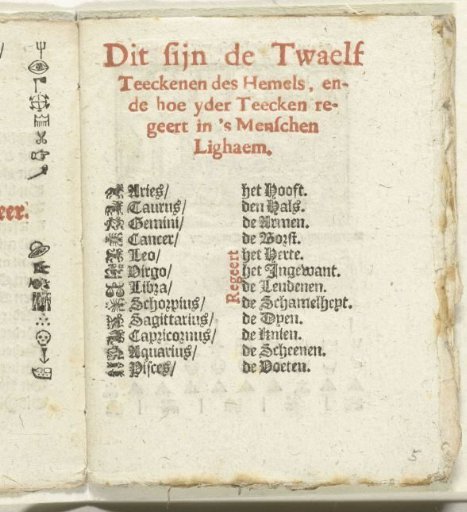 eer.
Dit sijn de Twaelf
Teeckenen des Hemels, en-
de hoe yder Teecken re-
geert in 's Menschen
Lighaem.
Aries/ het Hooft.
Taurus/ den Hals.
Gemini/ de Armen.
Cancer/ de Borst.
Leo/ het Herte.
Virgo/ het Ingewant.
Libra/ de Lendenen.
Schorpius/ de Schamelheyt.
Sagittarius/ de Dyen.
Capricornus/ de Knien.
Aquarius/ de Scheenen.
Pisces/ de Voeten.
Regeert
5